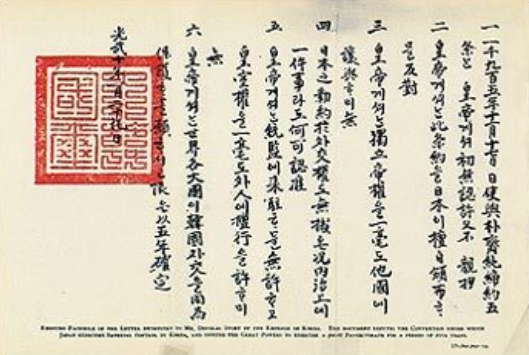 一 一千九百五年十一月十七日日使與朴齊純締約五
條는 皇帝게셔 初無認許又不 親押
二 皇帝게셔는 此條約을 日本이 擅自頒布ᄒᆞ
믈 反對
三 皇帝게셔는 獨立帝權을 一毫도 他國에
讓與ᄒᆞ미 無
四 日本之勒約於外交權도 無據온 況內治上에
一件事라도 何可認准
五 皇帝게셔는 統監에 來駐ᄒᆞ믈 無許ᄒᆞ고
皇室權을 一毫도 外人에 擅行을 許ᄒᆞ미
無
六 皇帝게셔는 世界各大國이 韓國外交을 同爲
保護ᄒᆞ믈 願ᄒᆞ시고 限은 以五年確定
光武十年一月二十九日
REDUCED FACSIMILE OF THE LETTER ENTRUSTED TO MR. DOUGLAS STORY BY THE EMPEROR OF KOREA. THE DOCUMENT DENIES THE CONVENTION UNDER WHICH
JAPAN EXERCISES IMPERIAL CONTROL IN KOREA, AND INVITES THE GREAT POWERS TO EXERCISE A JOINT PROTECTORATE FOR A PERIOD OF FIVE YEARS.